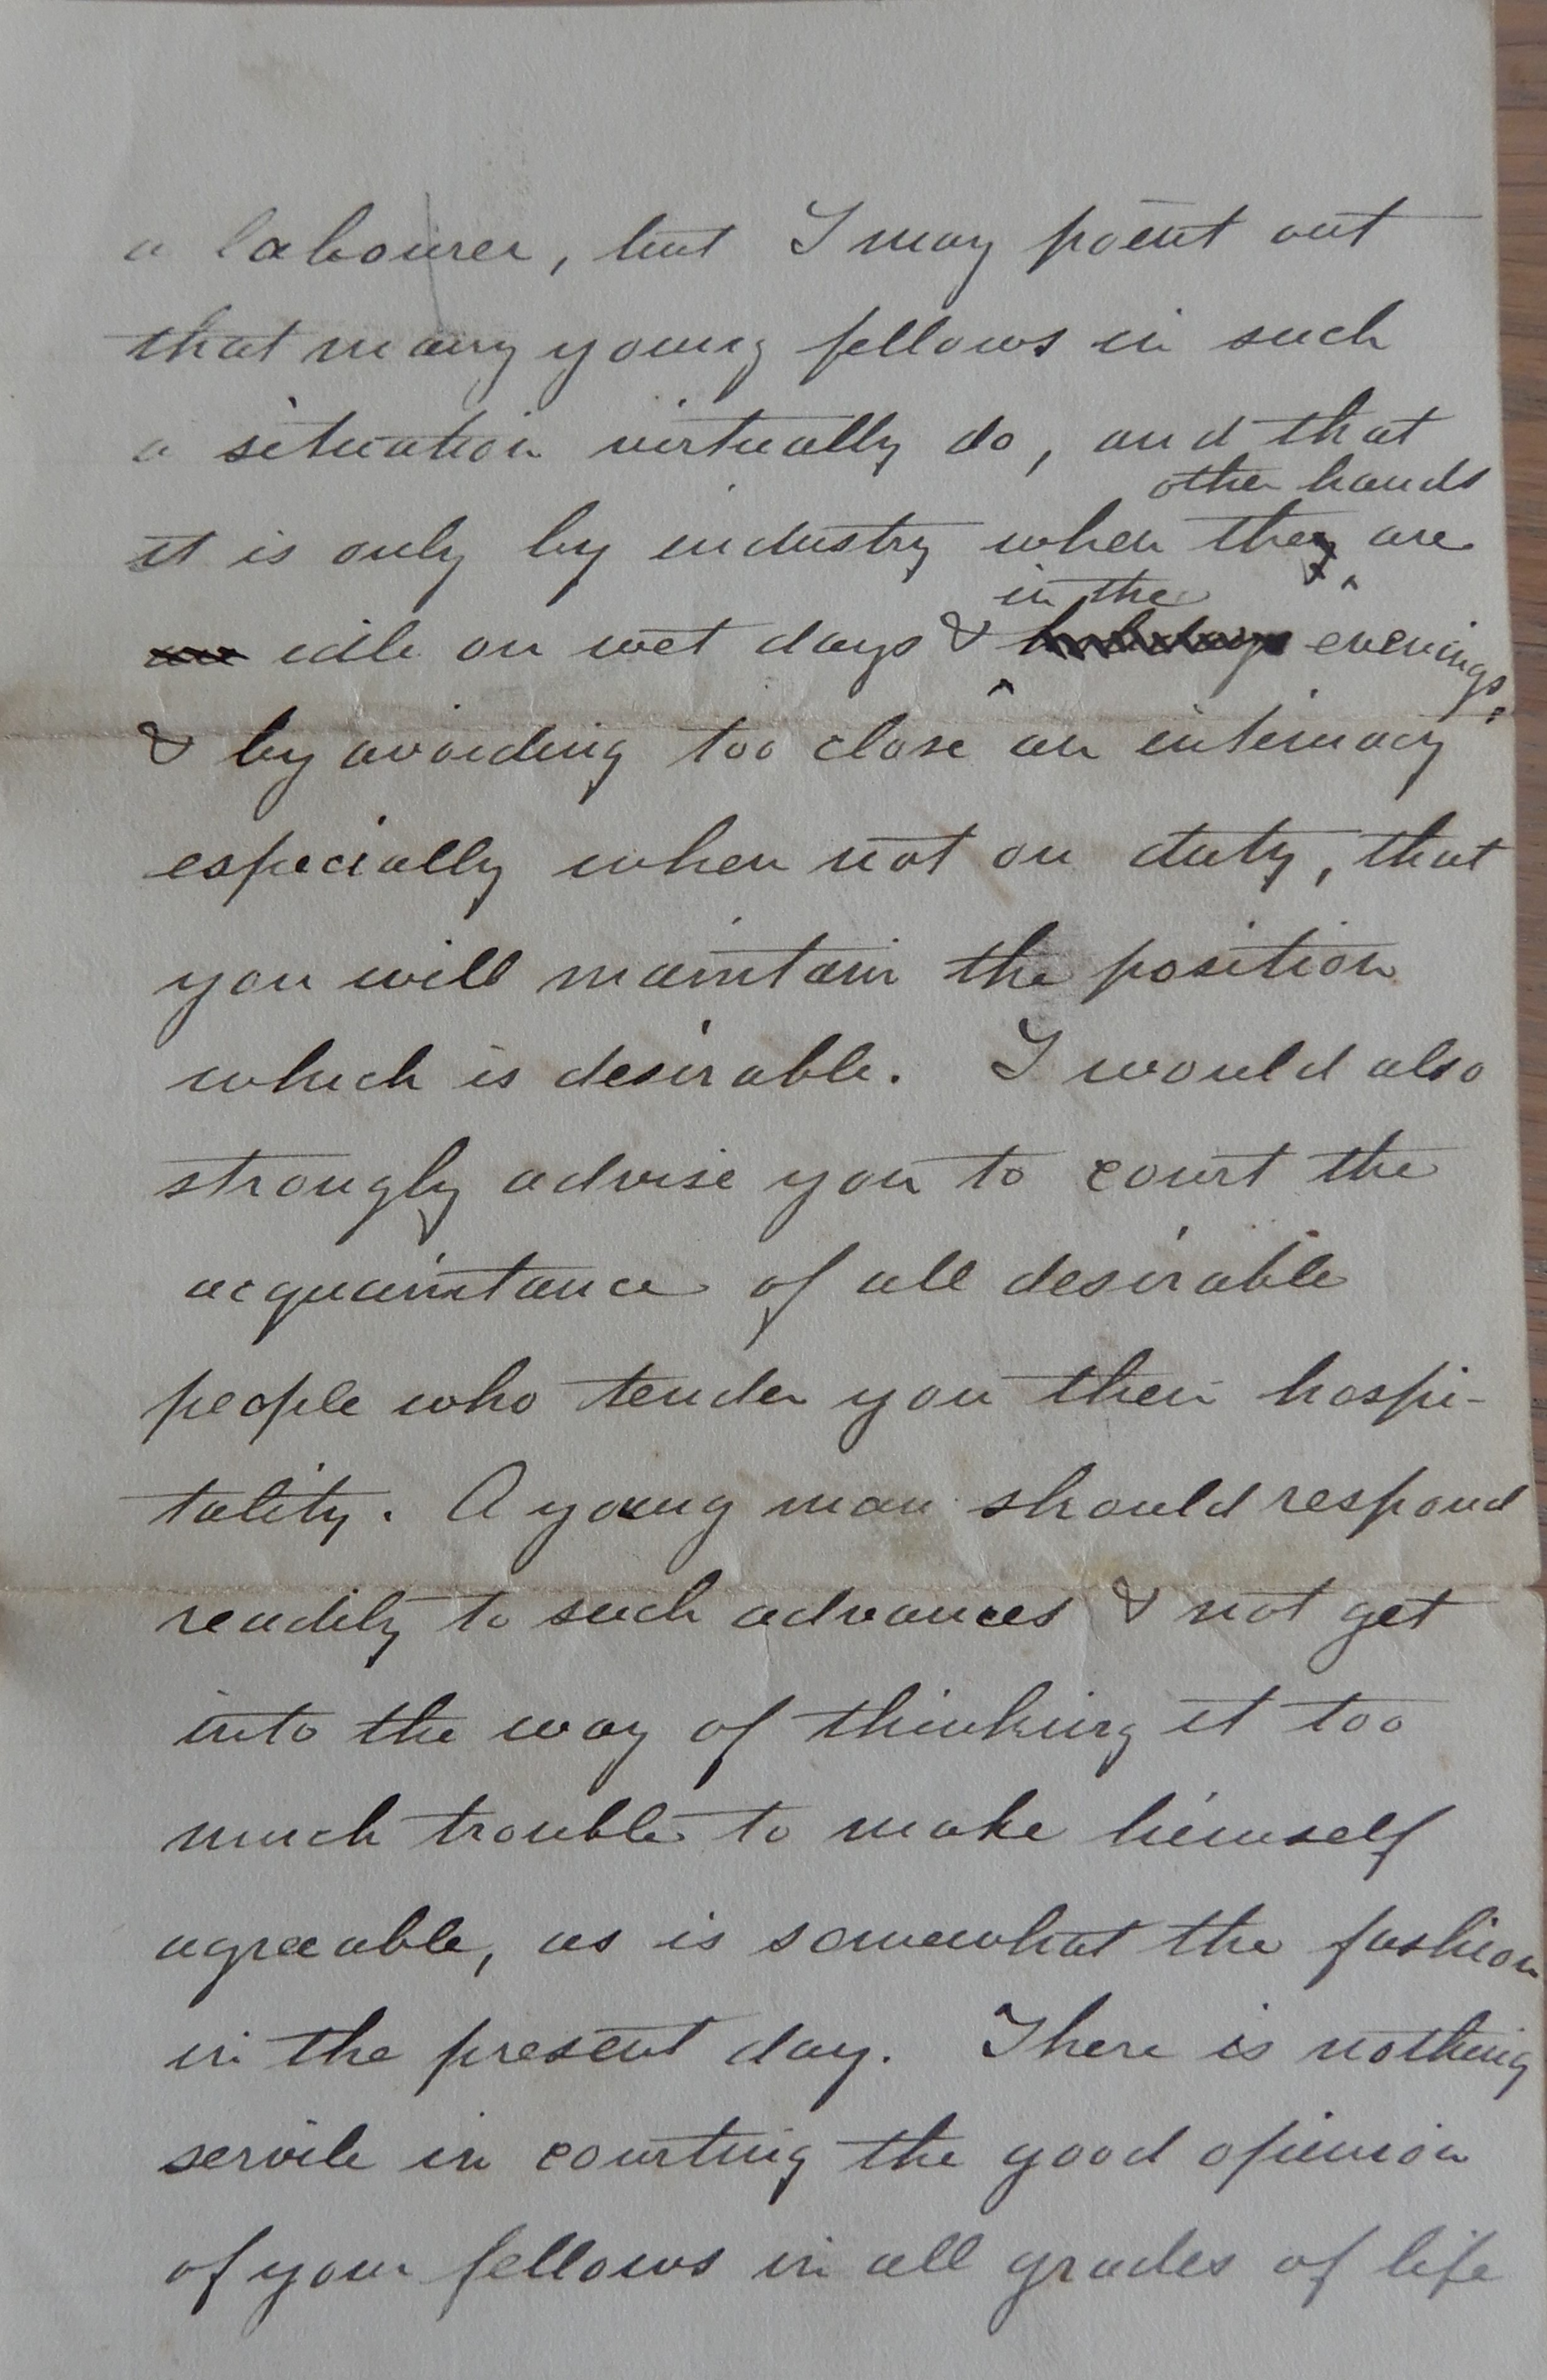 a labourer, but I may point out
that many young fellows in such
a situation virtually do, and that
other hands
it is only by industry when they are
in the
are idle on wet days & holidays evenings,
& by avoiding too close an intimacy
especially when not on duty, that
you will maintain the position
which is desirable. I would also
strongly advise you to court the
acquaintance of all desirable
people who tender you their hospi-
tality. A young man should respond
readily to such advances & not get
into the way of thinking it too
much trouble to make himself
agreeable, as is somewhat the fashion
in the present day. There is nothing
servile in courting the good opinion
of your fellows in all grades of life